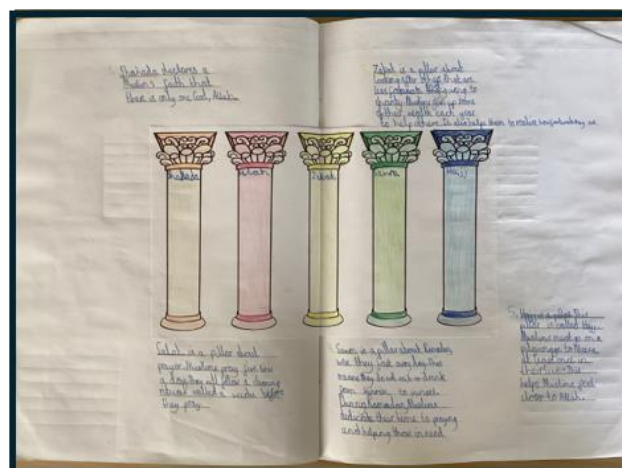 Shahada declares a
Muslims faith that
there is only one God, Allah.
Zakat is a pillar about
looking after others that are
less fortunate through giving to
charity. Muslims give up some
of their wealth each year
to help others. It also helps them to realise how fortunate they are.
Shahada
Salah
Zakat
Sawm
Hajj
Salah is a pillar about
prayer. Muslims pray five times
a day, they all follow a cleaning
called a wudu before
they pray.
Sawm is a pillar about Ramadan,
were they fast every day, this
means they do not eat or drink
from sunrise to sunset.
During Ramadan, Muslims
dedicate their time to praying
and helping those in need.
5. pillar
pillar is called Hajj.
Muslims must go on a
pilgrimage to Mecca
at least once in
their life. This
helps Muslims feel
close to Allah.